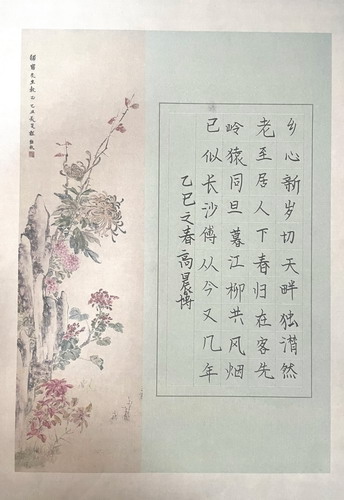 乡心新岁切天畔独潸然
老至居人下春归在客先
岭猿同旦暮江柳共风烟
已似长沙傅从今又几年
乙巳之春高晨博